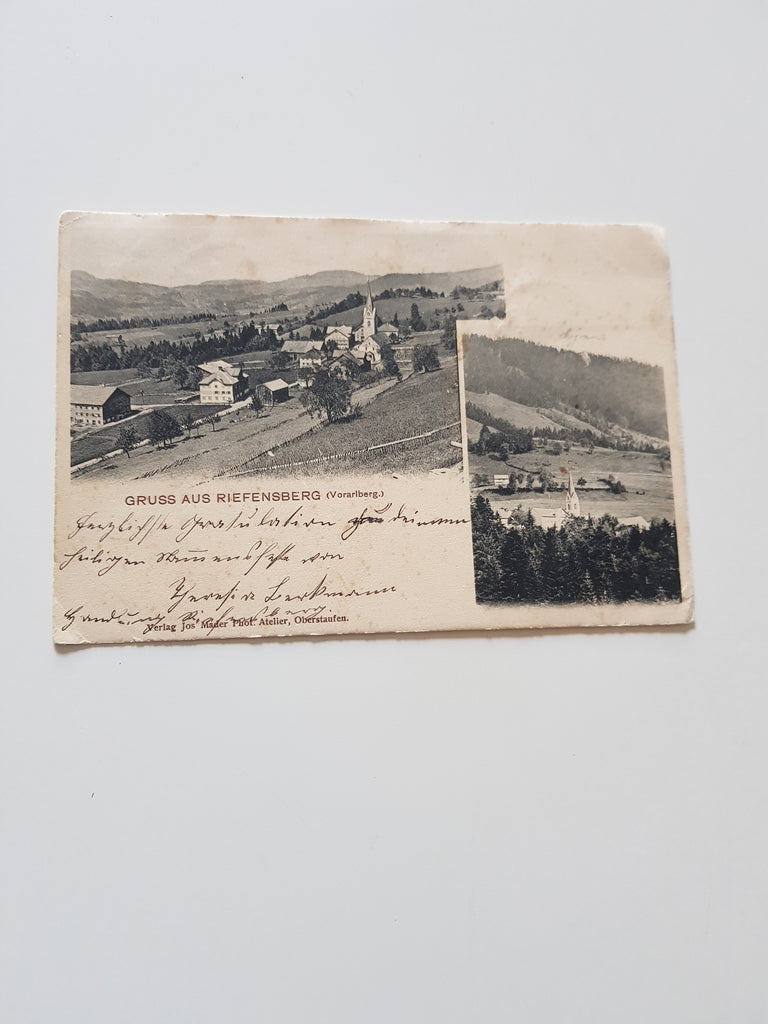 GRUSS AUS RIEFENSBERG (Vorarlberg.)
Herzlichste Gratulation zu deinem
heiligen Namensfeste von
Theresia Berkmann
Handlung Riefensberg.
Verlag Jos Mader Phot. Atelier, Oberstaufen.